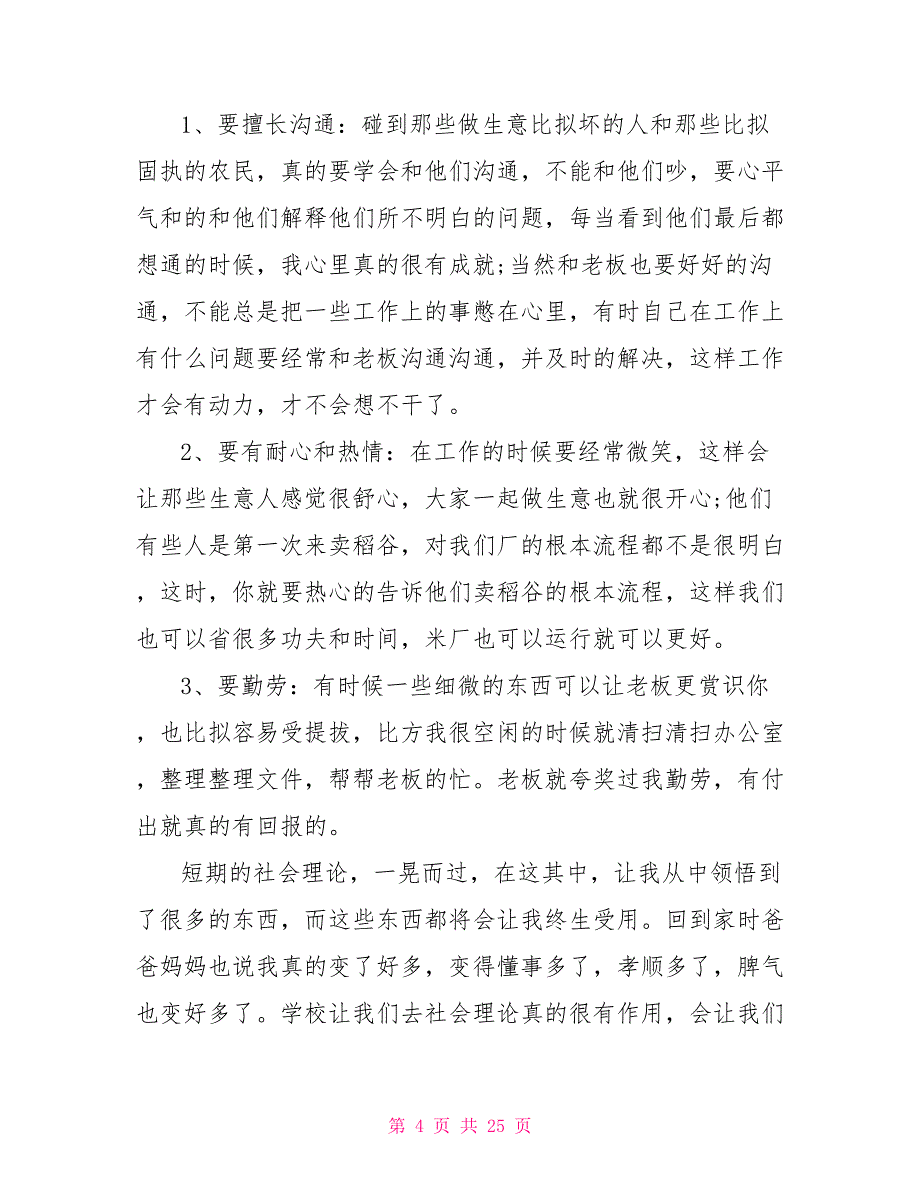 1、要擅长沟通：碰到那些做生意比拟坏的人和那些比拟
固执的农民，真的要学会和他们沟通，不能和他们吵，要心平
气和的和他们解释他们所不明白的问题，每当看到他们最后都
想通的时候，我心里真的很有成就;当然和老板也要好好的沟
通，不能总是把一些工作上的事憋在心里，有时自己在工作上
有什么问题要经常和老板沟通沟通，并及时的解决，这样工作
才会有动力，才不会想不干了。
2、要有耐心和热情：在工作的时候要经常微笑，这样会
让那些生意人感觉很舒心，大家一起做生意也就很开心;他们
有些人是第一次来卖稻谷，对我们厂的根本流程都不是很明白
，这时，你就要热心的告诉他们卖稻谷的根本流程，这样我们
也可以省很多功夫和时间，米厂也可以运行就可以更好。
3、要勤劳：有时候一些细微的东西可以让老板更赏识你
，也比拟容易受提拔，比方我很空闲的时候就清扫清扫办公室
，整理整理文件，帮帮老板的忙。老板就夸奖过我勤劳，有付
出就真的有回报的。
短期的社会理论，一晃而过，在这其中，让我从中领悟到
了很多的东西，而这些东西都将会让我终生受用。回到家时爸
爸妈妈也说我真的变了好多，变得懂事多了，孝顺多了，脾气
也变好多了。学校让我们去社会理论真的很有作用，会让我们
第 4 页 共 25 页